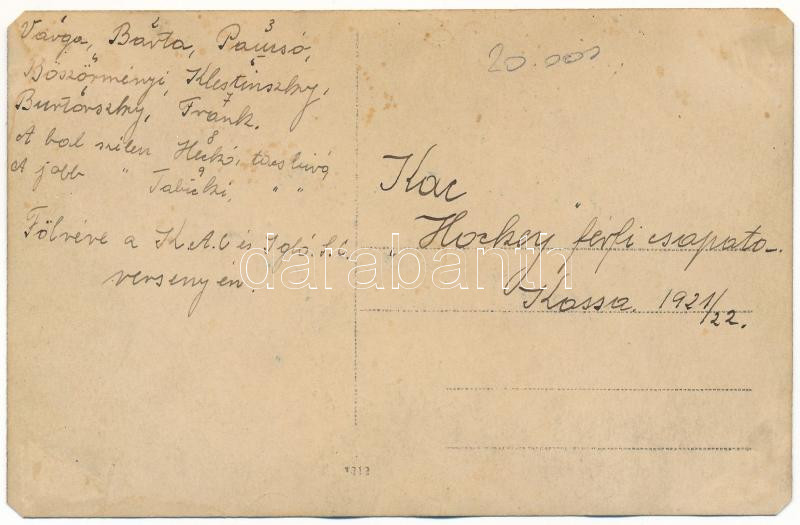 Várga, Bárta, Pausó,
Böszörményi, Klestinszky,
Burtorszky, Frank.
A bal szélen Heckó, tacsbiró,
A jobb " Tabicki, " "
Fölvéve a K.A.C és Igló. S.C.
versenyén.
20.000
Kac
"Hockey" férfi csapata.
Kassa. 1921/22.
darabanth
1313